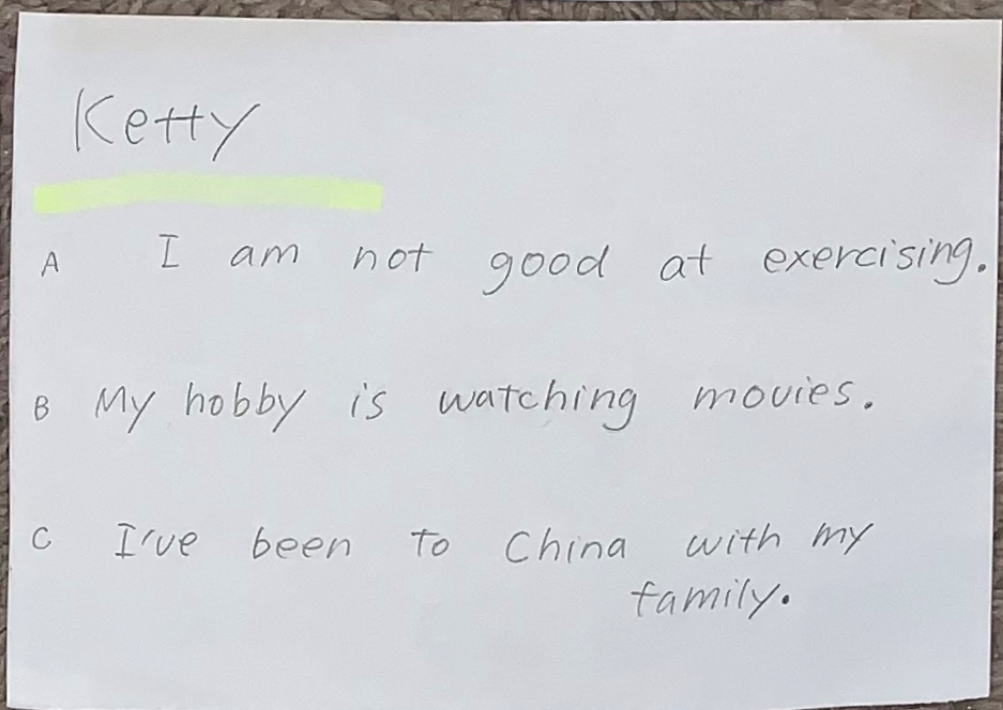 Ketty
A I am not good at exercising.
B My hobby is watching movies.
C I've been to China with my
family.